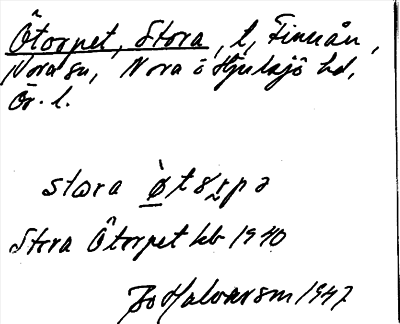 Ötorpet, Stora, l, Finnån,
Nora sn, Nora o Hjulsjö hd,
Ör. l.
stora ø̀torpə
Stora Ötorpet hb 1940
Bo Halvarson 1947